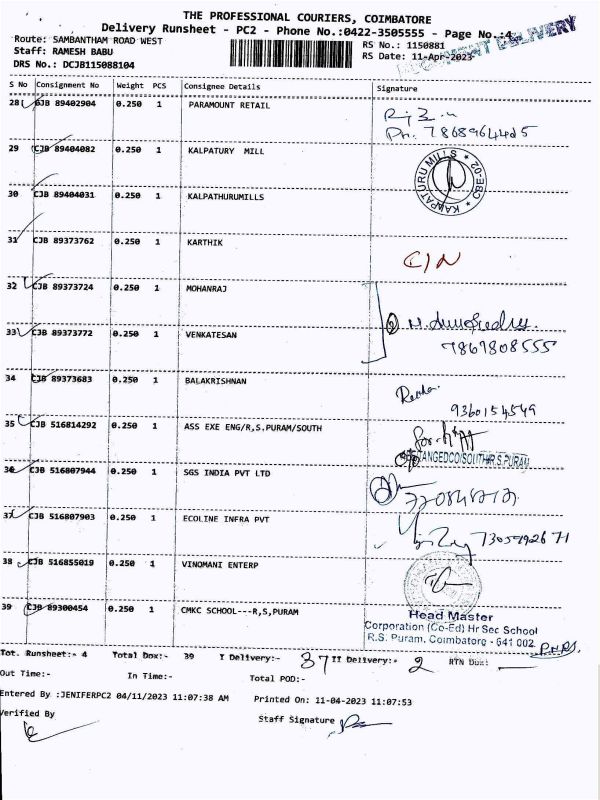 THE PROFESSIONAL COURIERS, COIMBATORE
Delivery Runsheet - PC2 - Phone No.:0422-3505555 - Page No.:4
Route: SAMBANTHAM ROAD WEST RS No.: 1150881
Staff: RAMESH BABU RS Date: 11-Apr-2023
DRS No.: DCJB115088104
DELIVERY
S No Consignment No Weight PCS Consignee Details Signature
28 CJB 89402904 0.250 1 PARAMOUNT RETAIL
Ph. 7868964485
29 CJB 89404082 0.250 1 KALPATURY MILL
KALPATURU MILLS
30 CJB 89404031 0.250 1 KALPATHURUMILLS
31 CJB 89373762 0.250 1 KARTHIK C/N
32 CJB 89373724 0.250 1 MOHANRAJ
33 CJB 89373772 0.250 1 VENKATESAN
7867808555
34 CJB 89373683 0.250 1 BALAKRISHNAN
9360154549
35 CJB 516814292 0.250 1 ASS EXE ENG/R,S.PURAM/SOUTH
TANGEDCO/SOUTH/R.S.PURAM
36 CJB 516807944 0.250 1 SGS INDIA PVT LTD
37 CJB 516807903 0.250 1 ECOLINE INFRA PVT
38 CJB 516855019 0.250 1 VINOMANI ENTERP
39 CJB 89300454 0.250 1 CMKC SCHOOL---R,S,PURAM
Head Master
Corporation (Co-Ed) Hr Sec School
R.S. Puram, Coimbatore - 641 002
Tot. Runsheet:- 4 Total Dox:- 39 I Delivery:- 37 II Delivery:- 2 RTN Dox:
Out Time:- In Time:- Total POD:-
Entered By :JENIFERPC2 04/11/2023 11:07:38 AM Printed On: 11-04-2023 11:07:53
Verified By Staff Signature